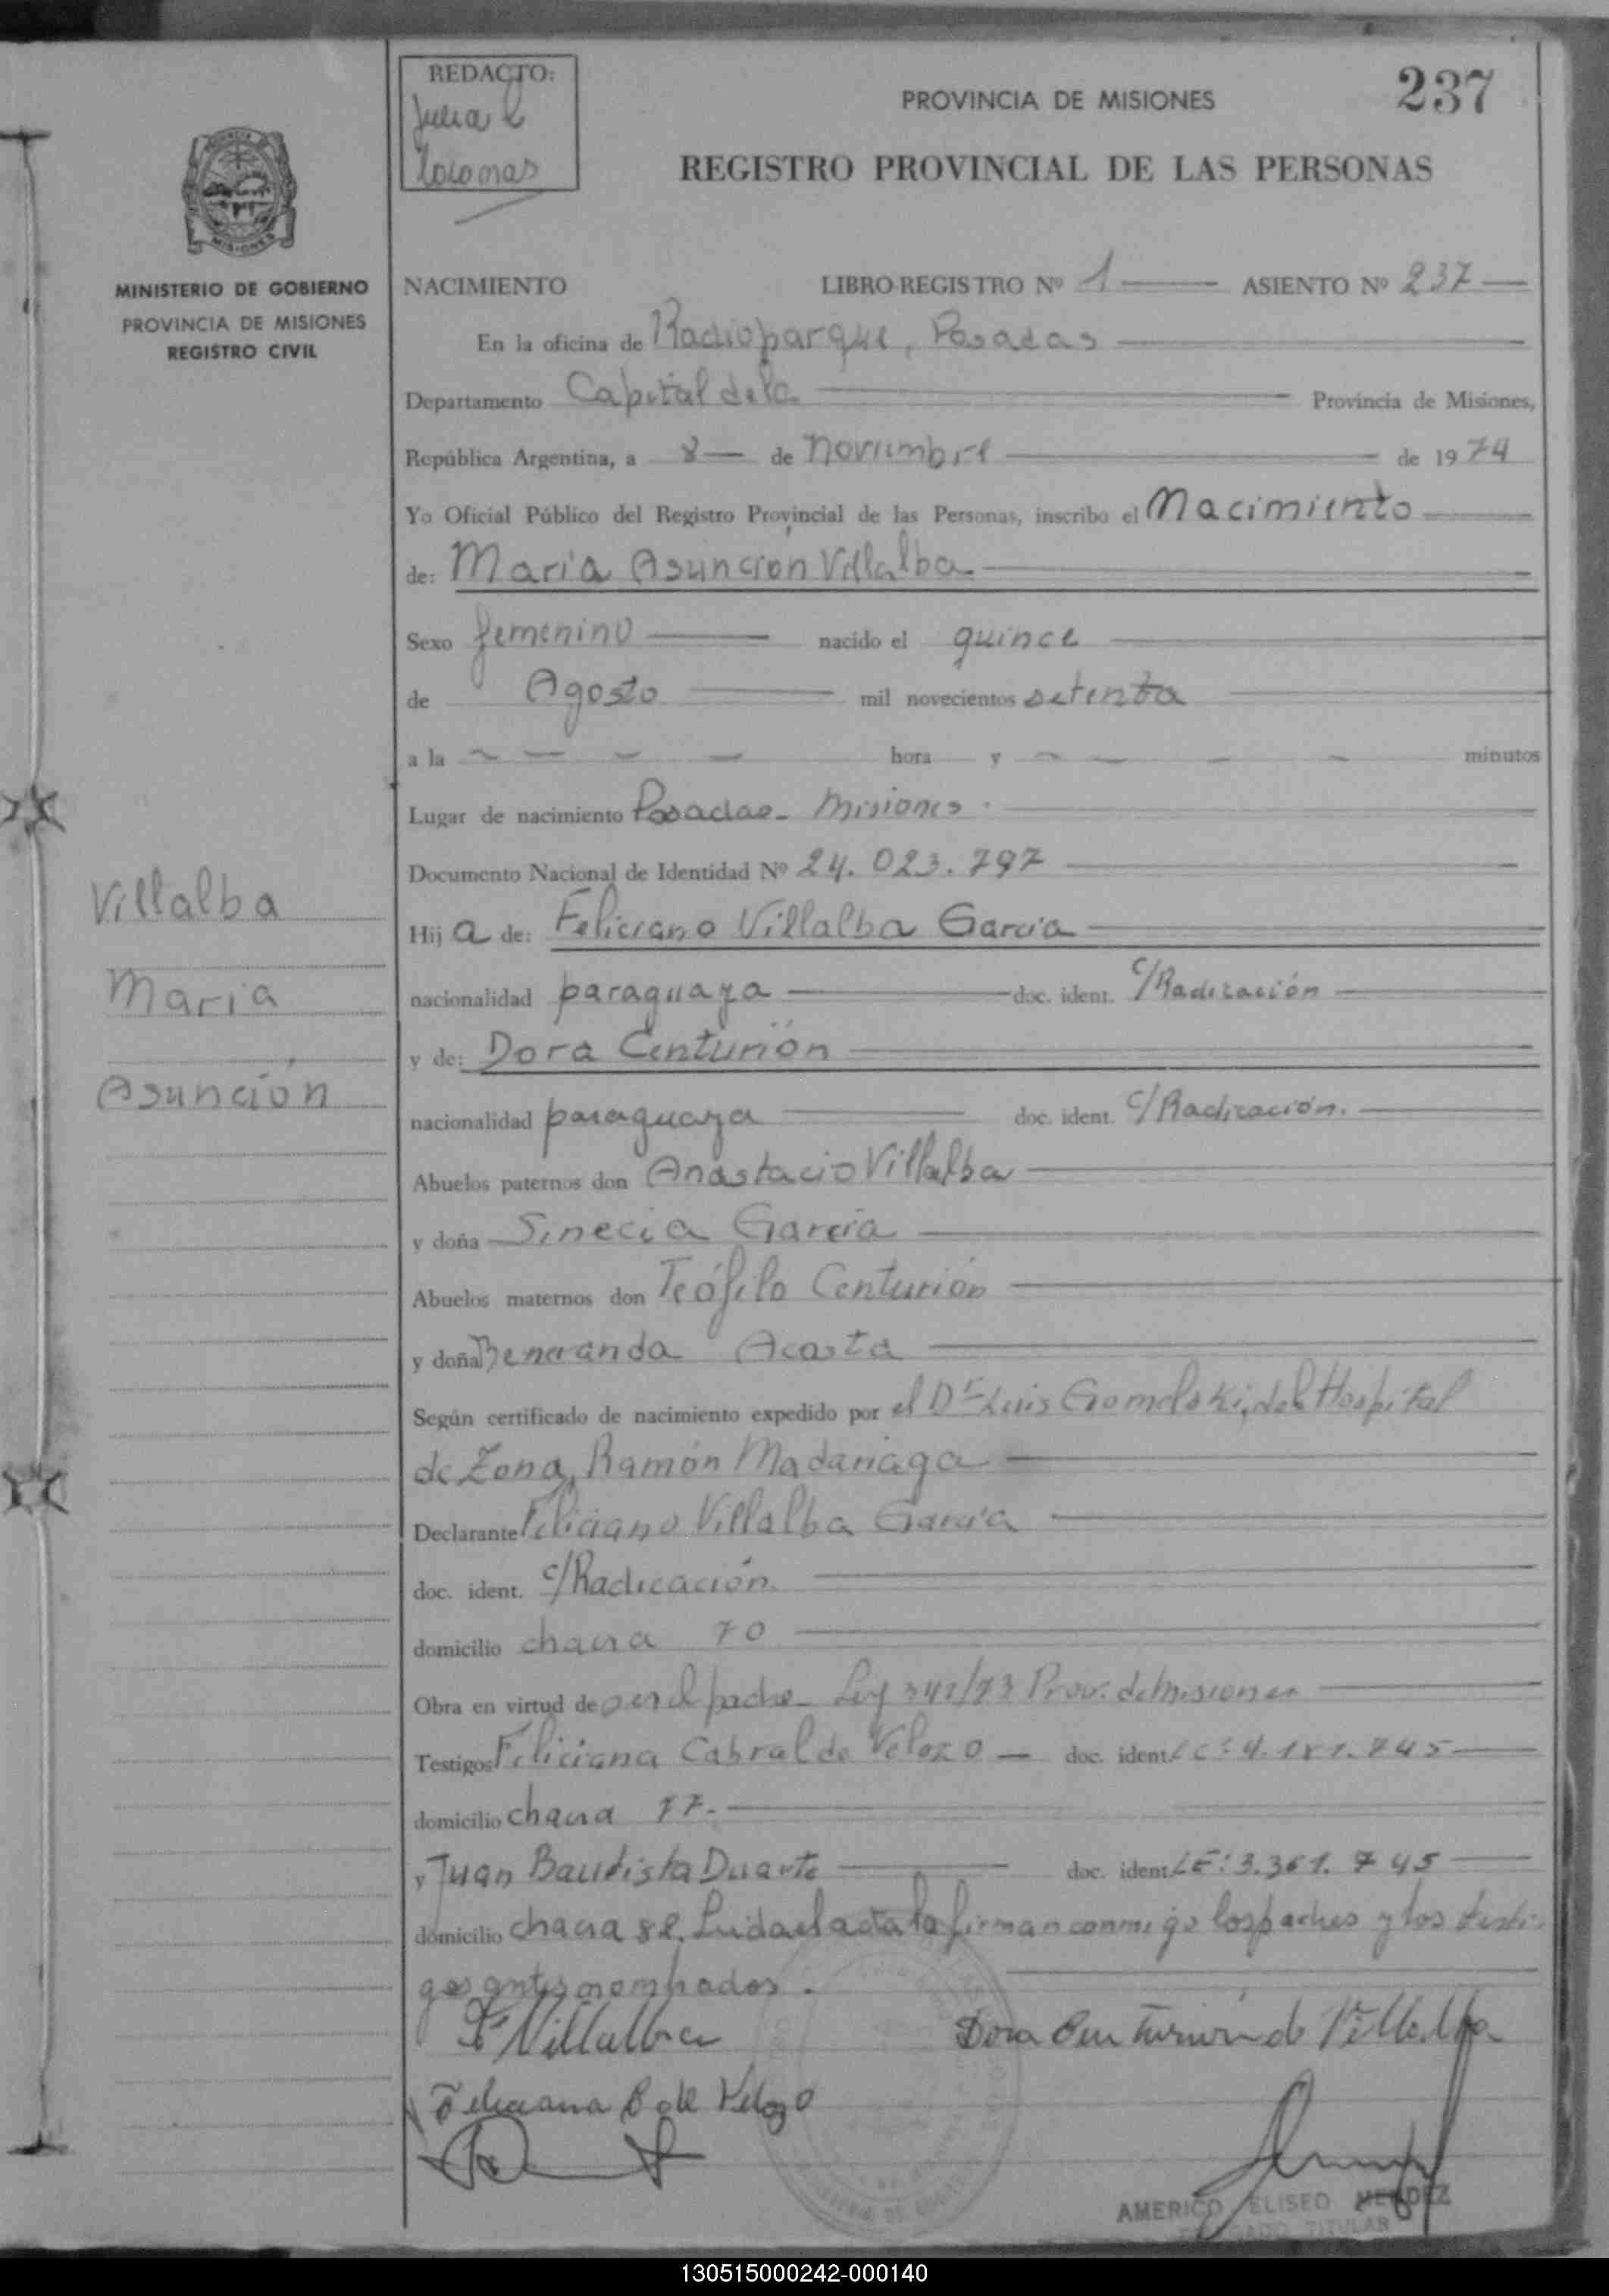 REDACTO:
Julia
237
PROVINCIA DE MISIONES
REGISTRO PROVINCIAL DE LAS PERSONAS
MISIONES
MINISTERIO DE GOBIERNO
PROVINCIA DE MISIONES
REGISTRO CIVIL
NACIMIENTO LIBRO-REGISTRO Nº 1 ASIENTO Nº 237
En la oficina de Radioparque, Posadas
Departamento Capital de la Provincia de Misiones,
República Argentina, a 8 de noviembre de 1974
Yo Oficial Público del Registro Provincial de las Personas, inscribo el Nacimiento
de: Maria Asunción Villalba
Sexo femenino nacido el quince
de Agosto mil novecientos setenta
a la hora y minutos
Lugar de nacimiento Posadas - Misiones.
Documento Nacional de Identidad Nº 24.023.797
Villalba
Maria
Asunción
Hij a de: Feliciano Villalba Garcia
nacionalidad paraguaya doc. ident. c/Radicación
y de: Dora Centurión
nacionalidad paraguaya doc. ident. c/Radicación.
Abuelos paternos don Anastacio Villalba
y doña Sinecia Garcia
Abuelos maternos don Teófilo Centurión
y doña Beneranda Acosta
Según certificado de nacimiento expedido por el Dr Luis Gomelski, del Hospital
de Zona, Ramón Madariaga
Declarante Feliciano Villalba Garcia
doc. ident. c/Radicación.
domicilio chacra 70
Obra en virtud de ser el padre - Ley 341/73 Prov. de Misiones
Testigos Feliciana Cabral de Velozo doc. ident. LC: 4.181.745
domicilio chacra 77.-
y Juan Bautista Duarte doc. ident. LE: 3.361.745
domicilio chacra 82. Leida el acta la firman conmigo los padres y los testi-
gos antes nombrados.
F Villalba Dora Centurión de Villalba
Feliciana C de Velozo
AMERICO ELISEO MENDEZ
DELEGADO TITULAR
130515000242-000140